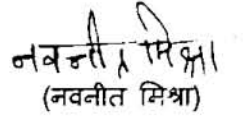 नवनीत मिश्रा
(नवनीत मिश्रा)